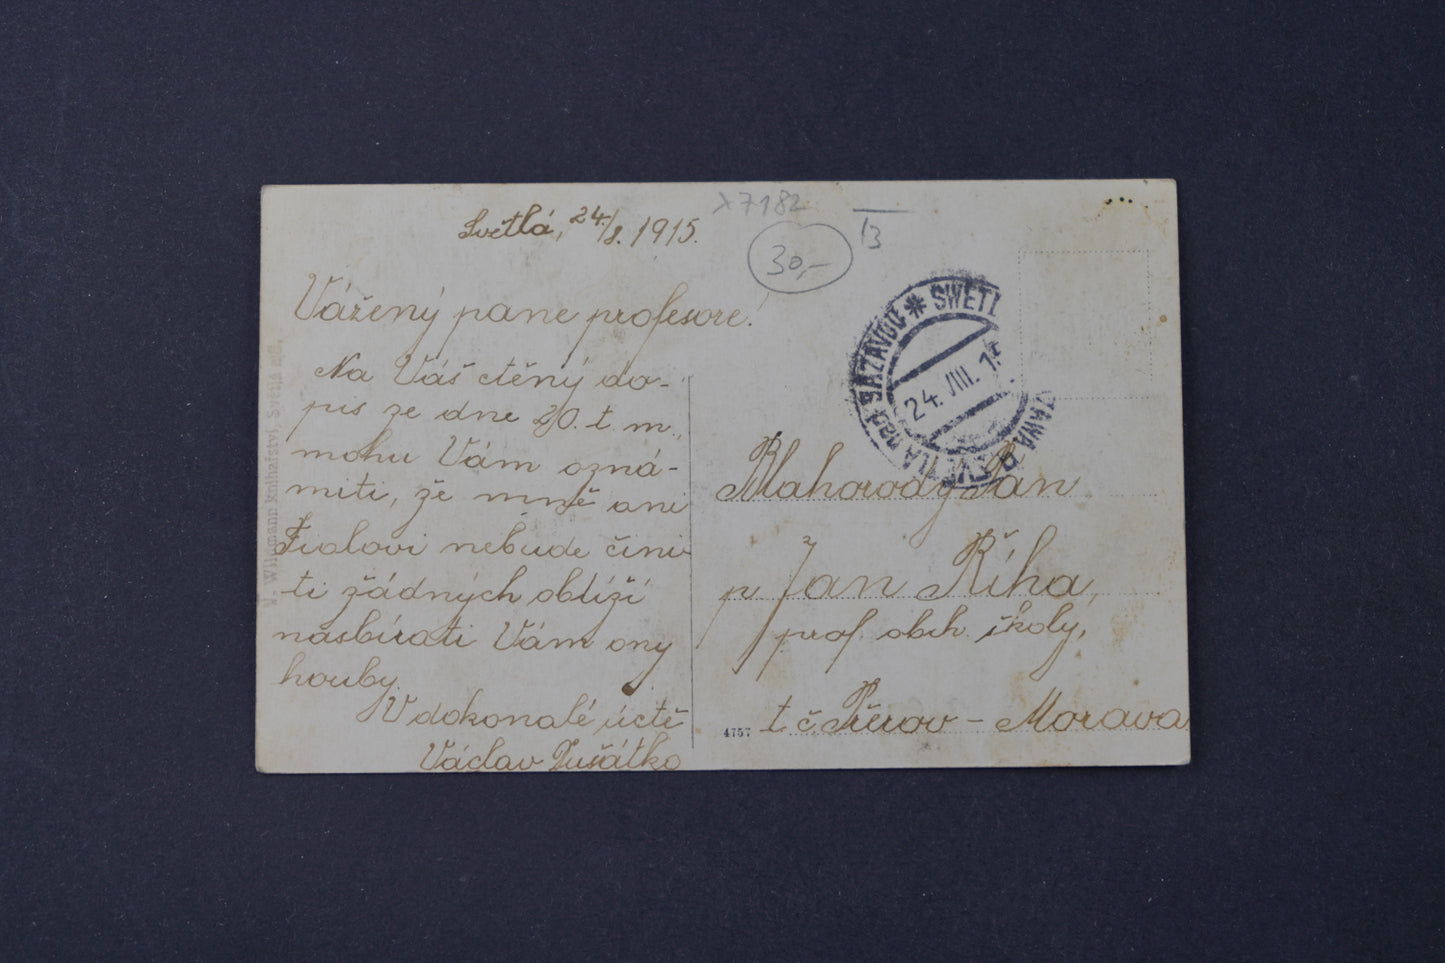 Světlá, 24./8. 1915.
Vážený pane profesore!
Na Váš ctěný do-
pis ze dne 20. t. m.
mohu Vám ozná-
miti, že mně ani
Fialovi nebude čini-
ti žádných obtíží
nasbírati Vám ony
houby.
V dokonalé úctě
Václav Dušátko
V. Wildmann knihařství, Světlá n/S.
7182
30,-
13
SVĚTLÁ nad SÁZAVOU * SWĚTL ZAWA
24. VIII. 15
Blahorodý Pán
p Jan Říha,
prof. obch. školy,
t. č. Přerov - Morava
4757